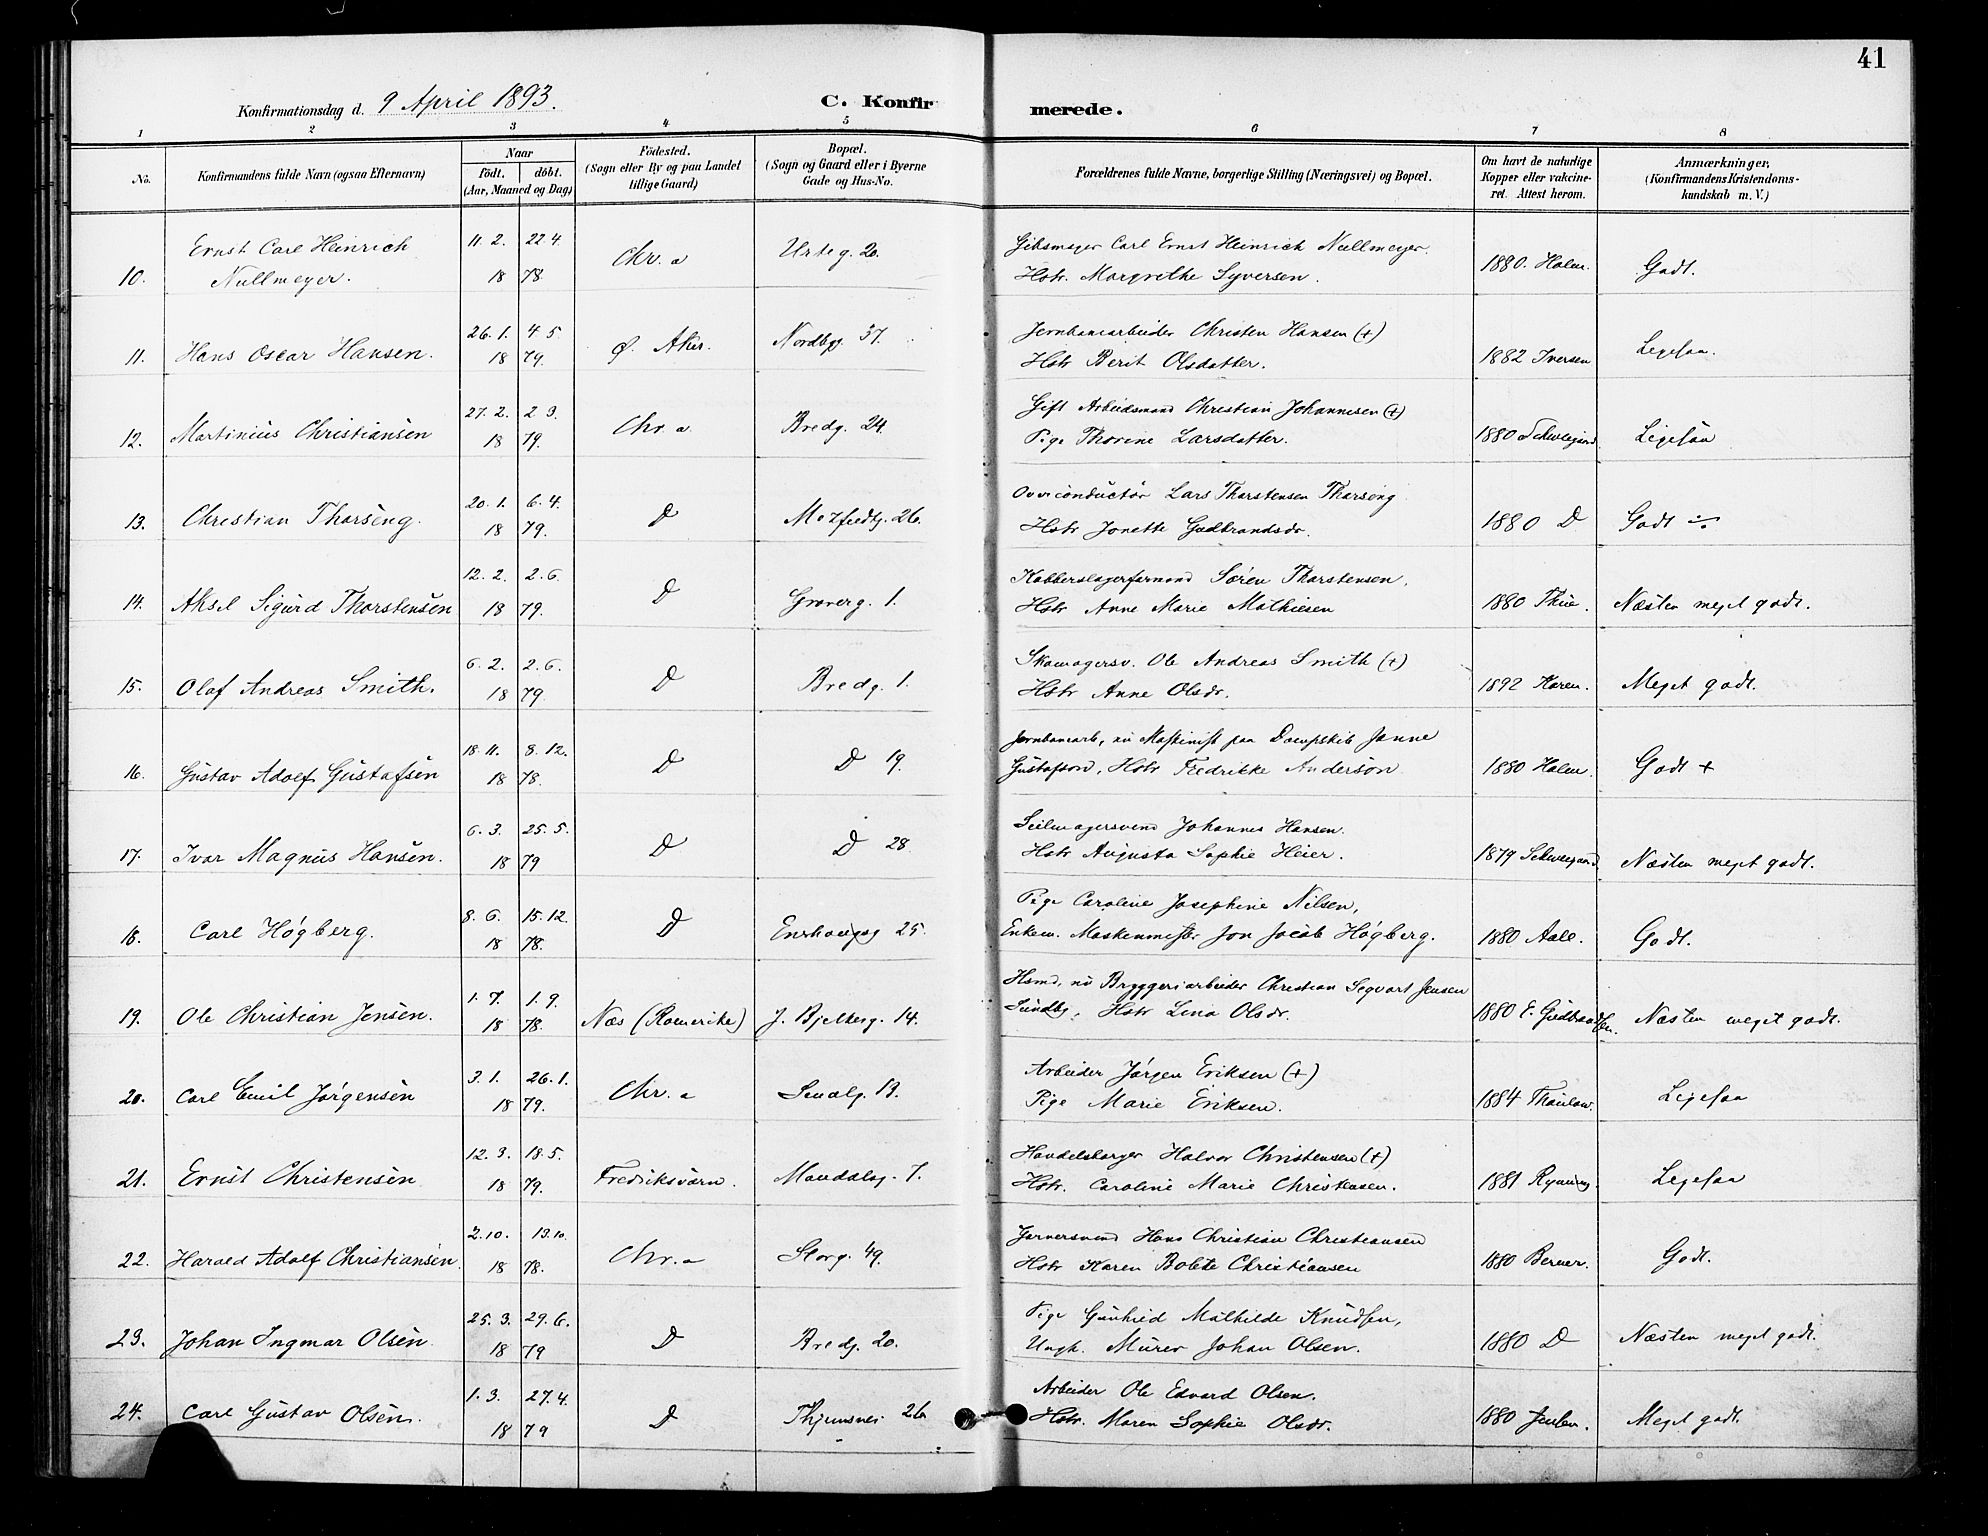 41
Konfirmationsdag d. 9 April 1893.
C. Konfirmerede.
1 2 3 4 5 6 7 8
No.
Konfirmandens fulde Navn (ogsaa Efternavn)
Naar
födt. döbt.
(Aar, Maaned og Dag)
Födested.
(Sogn eller By og paa Landet
tillige Gaard)
Bopæl.
(Sogn og Gaard eller i Byerne
Gade og Hus-No.
Forældrenes fulde Navne, borgerlige Stilling (Næringsvei) og Bopæl.
Om havt de naturlige
Kopper eller vakcine-
ret. Attest herom.
Anmærkninger,
(Konfirmandens Kristendoms-
kundskab m. V.)
Ernst Carl Heinrich 11. 2. 22. 4. Chr. a Urteg. 20. Gibsmager Carl Ernst Heinrich Nullmeyer.
10. Nullmeyer. 18 78. Hstr. Margrethe Syversen. 1880. Holm. Godt.
26. 1. 4. 5. Jernbanearbeider Christen Hansen (+)
11. Hans Oscar Hansen. 18 79. Ø. Aker. Nordbyg. 37. Hstr Berit Olsdatter. 1882 Iversen Ligesaa.
27. 2. 2. 3. Gift Arbeidsmand Christian Johannesen (+)
12. Martinius Christiansen 18 79. Chr. a Bredg. 24. Pige Thorine Larsdatter. 1880 Schweigaard Ligesaa
20. 1. 6. 4. Overconductør Lars Thorstensen Thorseng
13. Christian Thorseng. 18 79. D Motzfeldtg. 26. Hstr Jonette Gudbrandsdr. 1880 D Godt
12. 2. 2. 6. Kobberslagerformand Søren Thorstensen,
14. Aksel Sigurd Thorstensen 18 79. D Grønerg. 1. Hstr Anne Marie Mathiesen 1880 Thue. Næsten meget godt.
6. 2. 2. 6. Skomagersv. Ole Andreas Smith (+)
15. Olaf Andreas Smith. 18 79. D Bredg. 1. Hstr Anne Olsdr. 1892 Koren. Meget godt.
18. 11. 8. 12. Jernbanearb, nu Maskinist paa Dampskib Janne
16. Gustav Adolf Gustafsen 18 78. D D 19. Gustafson, Hstr Fredrikke Anderson 1880 Holm Godt +
6. 3. 25. 5. Seilmagersvend Johannes Hansen.
17. Ivar Magnus Hansen. 18 79 D D 28. Hstr Augusta Sophie Heier. 1879 Schweigaard Næsten meget godt.
8. 6. 15. 12. Pige Caroline Josephine Nilsen,
18. Carl Høgberg. 18 78. D Enerhaugg 25. Enkem. Maskinmester Jon Jacob Høgberg. 1880 Aall. Godt.
1. 7. 1. 9. Hsmd, nu Bryggeriarbeider Christian Segvart Jensen
19. Ole Christian Jensen. 18 78. Næs (Romerike) J. Bjelkeg. 14. Sundby, Hstr Lina Olsdr. 1880 E. Gudbrandsen. Næsten meget godt.
3. 1. 26. 1. Arbeider Jørgen Eriksen (+)
20. Carl Emil Jørgensen 18 79. Chr. a Smalg. 13. Pige Marie Eriksen. 1884 Thaulow. Ligesaa
12. 3. 18. 5. Handelsborger Halvor Christensen (+)
21. Ernst Christensen 18 79. Fredriksværn. Mandalsg. 7. Hstr. Caroline Marie Christensen. 1881 Rynning. Ligesaa
2. 10. 13. 10. Garversvend Hans Christian Christiansen
22. Harald Adolf Christiansen. 18 78. Chr. a Storg. 49. Hstr Karen Bolete Christiansen 1880 Berner. Godt.
25. 3. 29. 6. Pige Gunhild Mathilde Knudsen,
23. Johan Ingmar Olsen. 18 79 D Bredg. 20. Ungk. Murer Johan Olsen. 1880 D Næsten meget godt.
1. 3. 27. 4. Arbeider Ole Edvard Olsen.
24. Carl Gustav Olsen. 18 79 D 26 Hstr. Maren Sophie Olsdr. 1880 Meget godt.